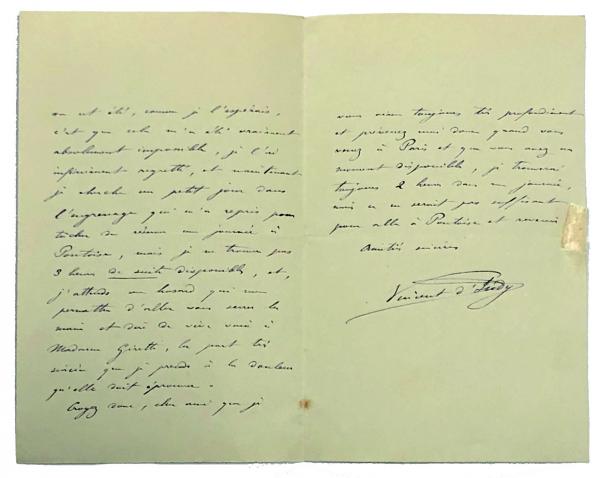 cet été, comme je l'espérais,
c'est que cela m'a été vraiment
absolument impossible, je l'ai
infiniment regretté, et maintenant
je cherche un petit jour dans
l'engrenage qui m'a repris pour
tâcher de réunir une journée à
Pontoise, mais je ne trouve pas
3 heures de suite disponibles, et,
j'attends un hasard qui me
permettra d'aller vous serrer la
main et de vive voix à
Madame la part très
sincère que je prends à la douleur
qu'elle doit éprouver.
Croyez donc, cher ami que je
vous aime toujours très profondément
et prévenez moi donc quand vous
venez à Paris et que vous avez un
moment disponible, je trouverai
toujours 2 heures dans une journée,
mais ce ne serait pas suffisant
pour aller à Pontoise et revenir
Amitiés sincères
Vincent d'Indy